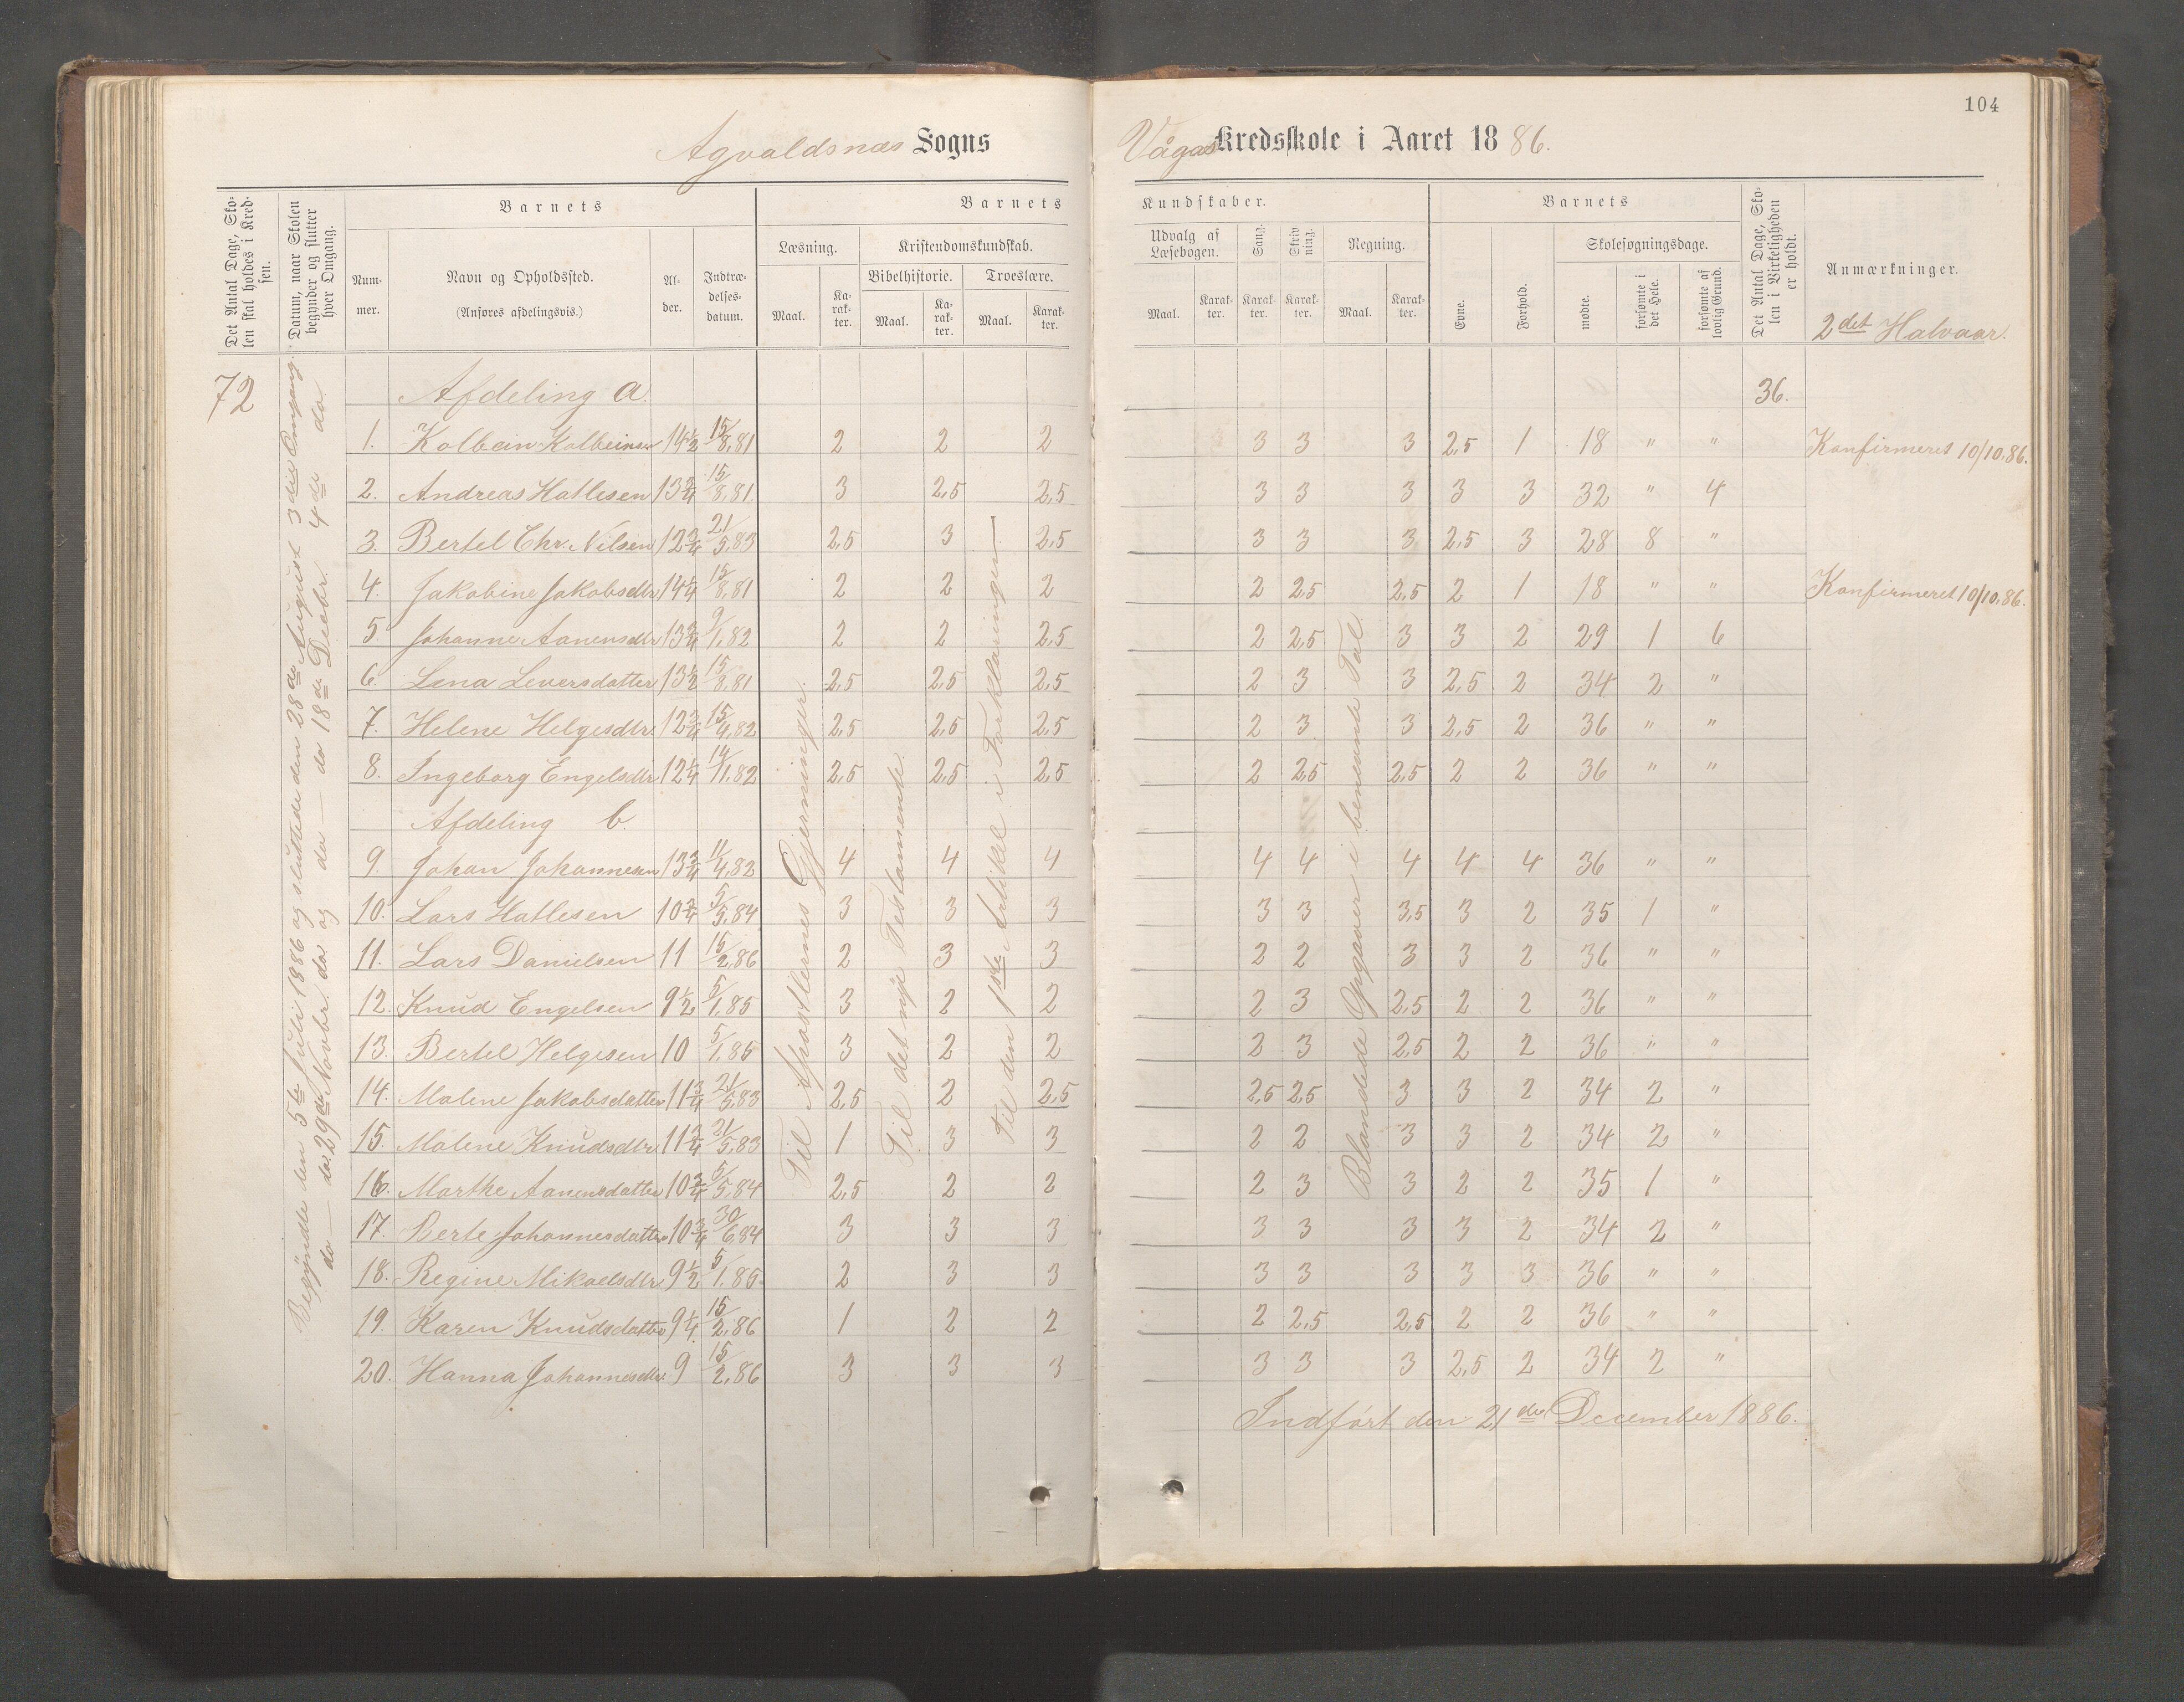 104
Agvaldsnæs Sogns
Vågas Kredsskole i Aaret 1886.
Det Antal Dage, Skolen skal holdes i Kredsen.
Datum, naar Skolen begynder og slutter hver Omgang.
Barnets
Nummer.
Navn og Opholdssted.
(Anføres afdelingsvis.)
Alder.
Indtrædelsesdatum.
Barnets Kundskaber.
Læsning.
Maal.
Karakter.
Kristendomskundskab.
Bibelhistorie.
Maal.
Karakter.
Troeslære.
Maal.
Karakter.
Udvalg af Læsebogen.
Maal.
Karakter.
Sang.
Karakter.
Skrivning.
Karakter.
Regning.
Maal.
Karakter.
Barnets
Evne.
Forhold.
Skolesøgningsdage.
mødte.
forsømte i det Hele.
forsømte af lovlig Grund.
Det Antal Dage, Skolen i Virkeligheden er holdt.
Anmærkninger.
2det Halvaar.
72
Begyndte den 5te Juli 1886 og sluttede den 28de August 3die Omgang.
do — do 29de Novbr. do og do — do 18de Decbr. 4de do
Til Apostlernes Gjerninger.
Til det nye Testamente.
Til den 1ste Artikkel i Forklaringen
Blandede Opgaver i benævnte Tal.
Afdeling a. 36.
1. Kolbein Kolbeinsen 14 1/2 15/8.81 2 2 2 3 3 3 2,5 1 18 " " Konfirmeret 10/10.86.
2. Andreas Hatlesen 13 3/4 15/8.81 3 2,5 2,5 3 3 3 3 3 32 " 4
3. Bertel Chr. Nilsen 12 3/4 21/5.83 2,5 3 2,5 3 3 3 2,5 3 28 8 "
4. Jakobine Jakobsdtr 14 1/4 15/8.81 2 2 2 2 2,5 2,5 2 1 18 " " Konfirmeret 10/10.86.
5 Johanne Aanensdtr 13 3/4 9/1.82 2 2 2,5 2 2,5 3 3 2 29 1 6
6. Lena Leversdatter 13 1/2 15/8.81 2,5 2,5 2,5 2 3 3 2,5 2 34 2 "
7. Helene Helgesdtr. 12 3/4 15/4.82 2,5 2,5 2,5 2 3 3 2,5 2 36 " "
8. Ingeborg Engelsdtr 12 1/4 14/11.82 2,5 2,5 2,5 2 2,5 2,5 2 2 36 " "
Afdeling b.
9. Johan Johannesen 13 3/4 11/4.82 4 4 4 4 4 4 4 4 36 " "
10. Lars Hatlesen 10 3/4 5/5.84 3 3 3 3 3 3,5 3 2 35 1 "
11. Lars Danielsen 11 15/2.86 2 3 3 2 2 3 3 2 36 " "
12. Knud Engelsen 9 1/2 5/1.85 3 2 2 2 3 2,5 2 2 36 " "
13. Bertel Helgesen 10 5/1.85 3 2 2 2 3 2,5 2 2 36 " "
14. Malene Jakobsdatter 11 3/4 21/5.83 2,5 2 2,5 2,5 2,5 3 3 2 34 2 "
15. Malene Knudsdtr. 11 3/4 21/5.83 1 3 3 2 2 3 3 2 34 2 "
16. Marthe Aanensdatter 10 3/4 5/5.84 2,5 2 2 2 3 3 2 2 35 1 "
17. Berte Johannesdatter 10 3/4 30/6.84 3 3 3 3 3 3 3 2 34 2 "
18. Regine Mikaelsdtr. 9 1/2 5/1.85 2 3 3 3 3 3 3 3 36 " "
19. Karen Knudsdatter 9 1/4 15/2.86 1 2 2 2 2,5 2,5 2 2 36 " "
20. Hanna Johannesdtr. 9 15/2.86 3 3 3 3 3 3 2,5 2 34 2 "
Indført den 21de December 1886.